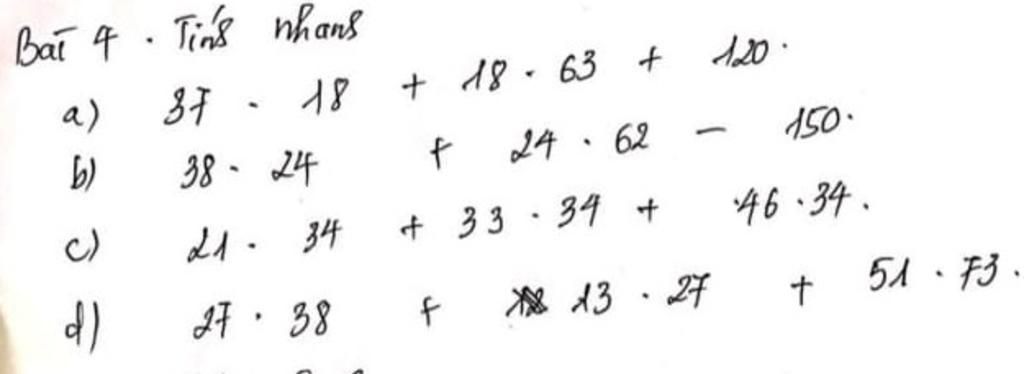 Bài 4. Tính nhanh
a) 37 . 18 + 18 . 63 + 120.
b) 38 . 24 + 24 . 62 - 150.
c) 21 . 34 + 33 . 34 + 46 . 34.
d) 27 . 38 + 13 . 27 + 51 . 73.